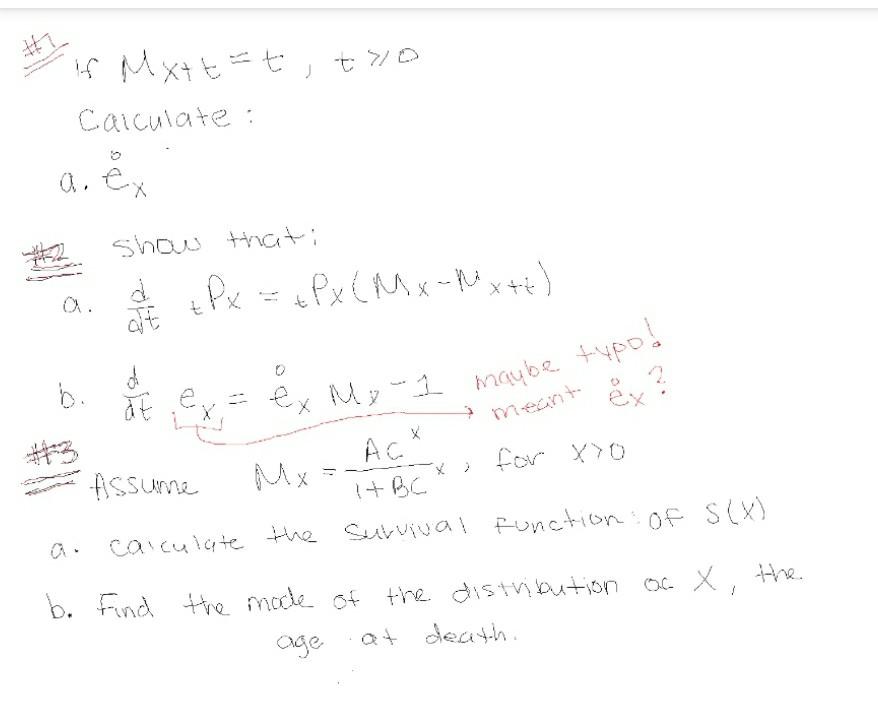 #1
If Mx+t = t, t ≥ 0
Calculate:
a. e̊x
#2 show that:
a. d/dt tPx = tPx (Mx - Mx+t)
b. d/dt ex = e̊x Mx - 1 maybe typo!
meant e̊x?
#3
Assume Mx = AC^x / 1 + BC^x, for x > 0
a. calculate the survival function: of S(x)
b. Find the mode of the distribution oc X, the
age at death.